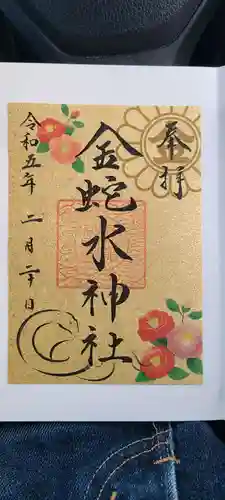 奉拝
金蛇水神社
令和五年二月二十日